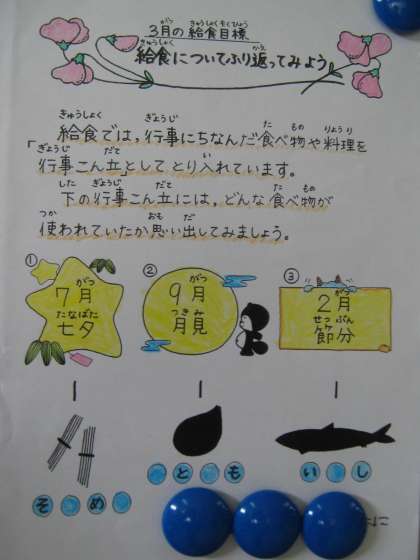 3月の給食目標
給食についてふり返ってみよう
給食では,行事にちなんだ食べ物や料理を
「行事こん立」としてとり入れています。
下の行事こん立には,どんな食べ物が
使われていたか思い出してみましょう。
① 7月 七夕
② 9月 月見
③ 2月 節分
そ め
と も
い し